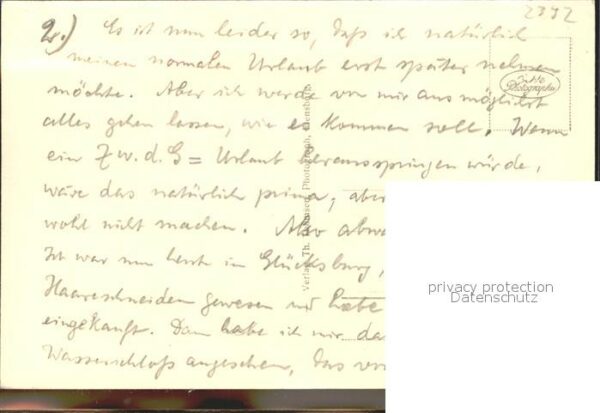 2372
2.) Es ist nun leider so, daß ich natürlich
meinen normalen Urlaub erst später nehmen
möchte. Aber ich werde von mir aus möglichst
alles gehen lassen, wie es kommen soll. Wenn
ein Z.w.d.G = Urlaub herausspringen würde,
wäre das natürlich prima, aber
wohl nicht machen. Also abwa
Ich war nun heute in Glücksburg,
Haareschneiden gewesen und habe
eingekauft. Dann habe ich mir das
Wasserschloß angesehen, das
Photographie
Verlag Th. Thomsen, Photograph, Flensburg
privacy protection
Datenschutz